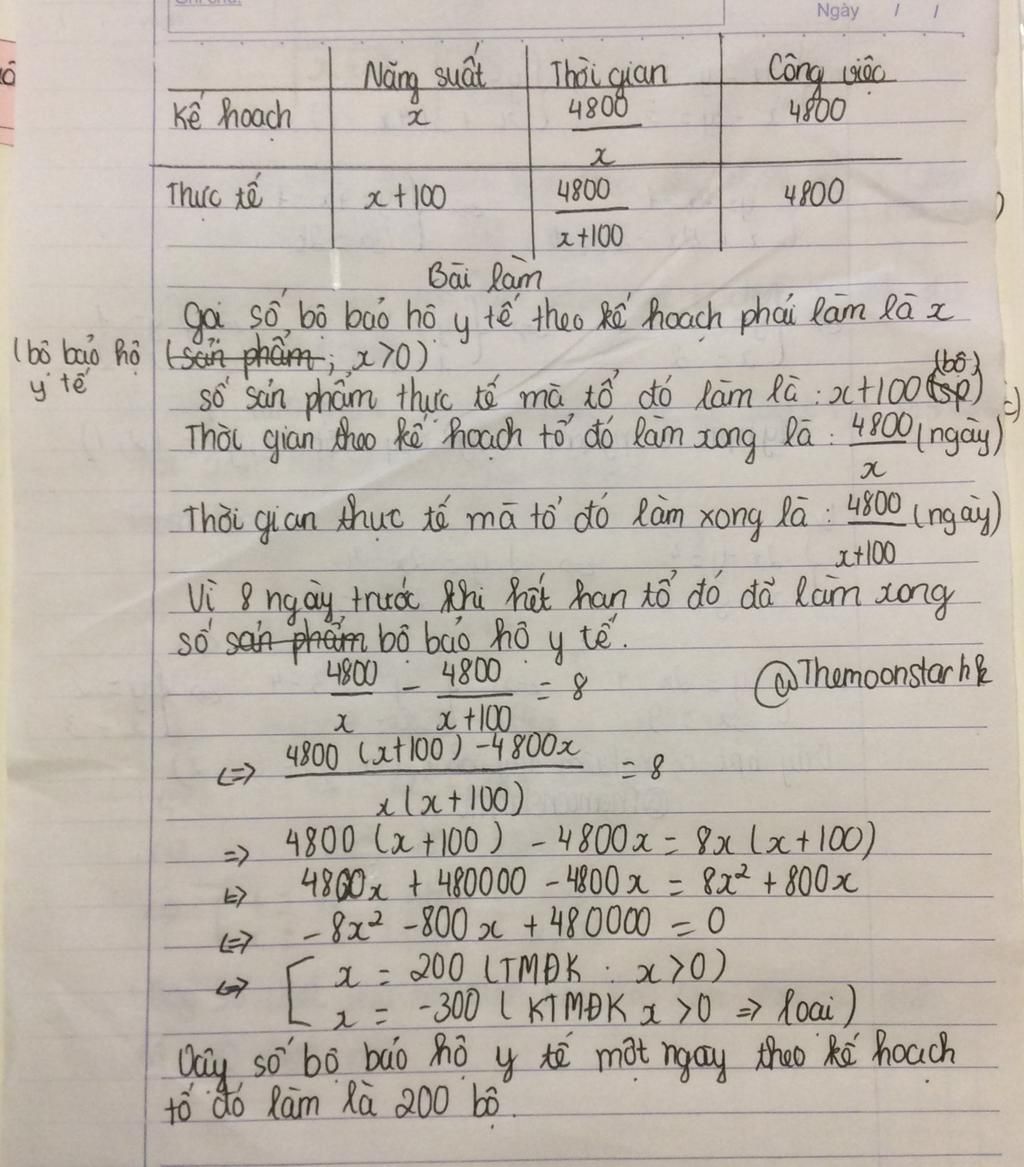 Ngày / /
Năng suất Thời gian Công việc
Kế hoạch x 4800/x 4800
Thực tế x+100 4800/x+100 4800
Bài làm
Gọi số bộ bảo hộ y tế theo kế hoạch phải làm là x
(bộ bảo hộ y tế (sản phẩm; x>0)
số sản phẩm thực tế mà tổ đó làm là : x+100 (sp) (bộ)
Thời gian theo kế hoạch tổ đó làm xong là : 4800/x (ngày)
Thời gian thực tế mà tổ đó làm xong là : 4800/x+100 (ngày)
Vì 8 ngày trước khi hết hạn tổ đó đã làm xong
số sản phẩm bộ bảo hộ y tế.
4800/x - 4800/x+100 = 8
@Themoonstarhk
<=> 4800 (x+100) -4800x / x(x+100) = 8
=> 4800 (x+100) - 4800x = 8x (x+100)
<=> 4800x + 480000 - 4800x = 8x² + 800x
<=> -8x² -800x + 480000 = 0
<=> [ x = 200 (TMĐK : x>0)
x = -300 ( KTMĐK x >0 => loại)
Vậy số bộ bảo hộ y tế một ngày theo kế hoạch
tổ đó làm là 200 bộ.